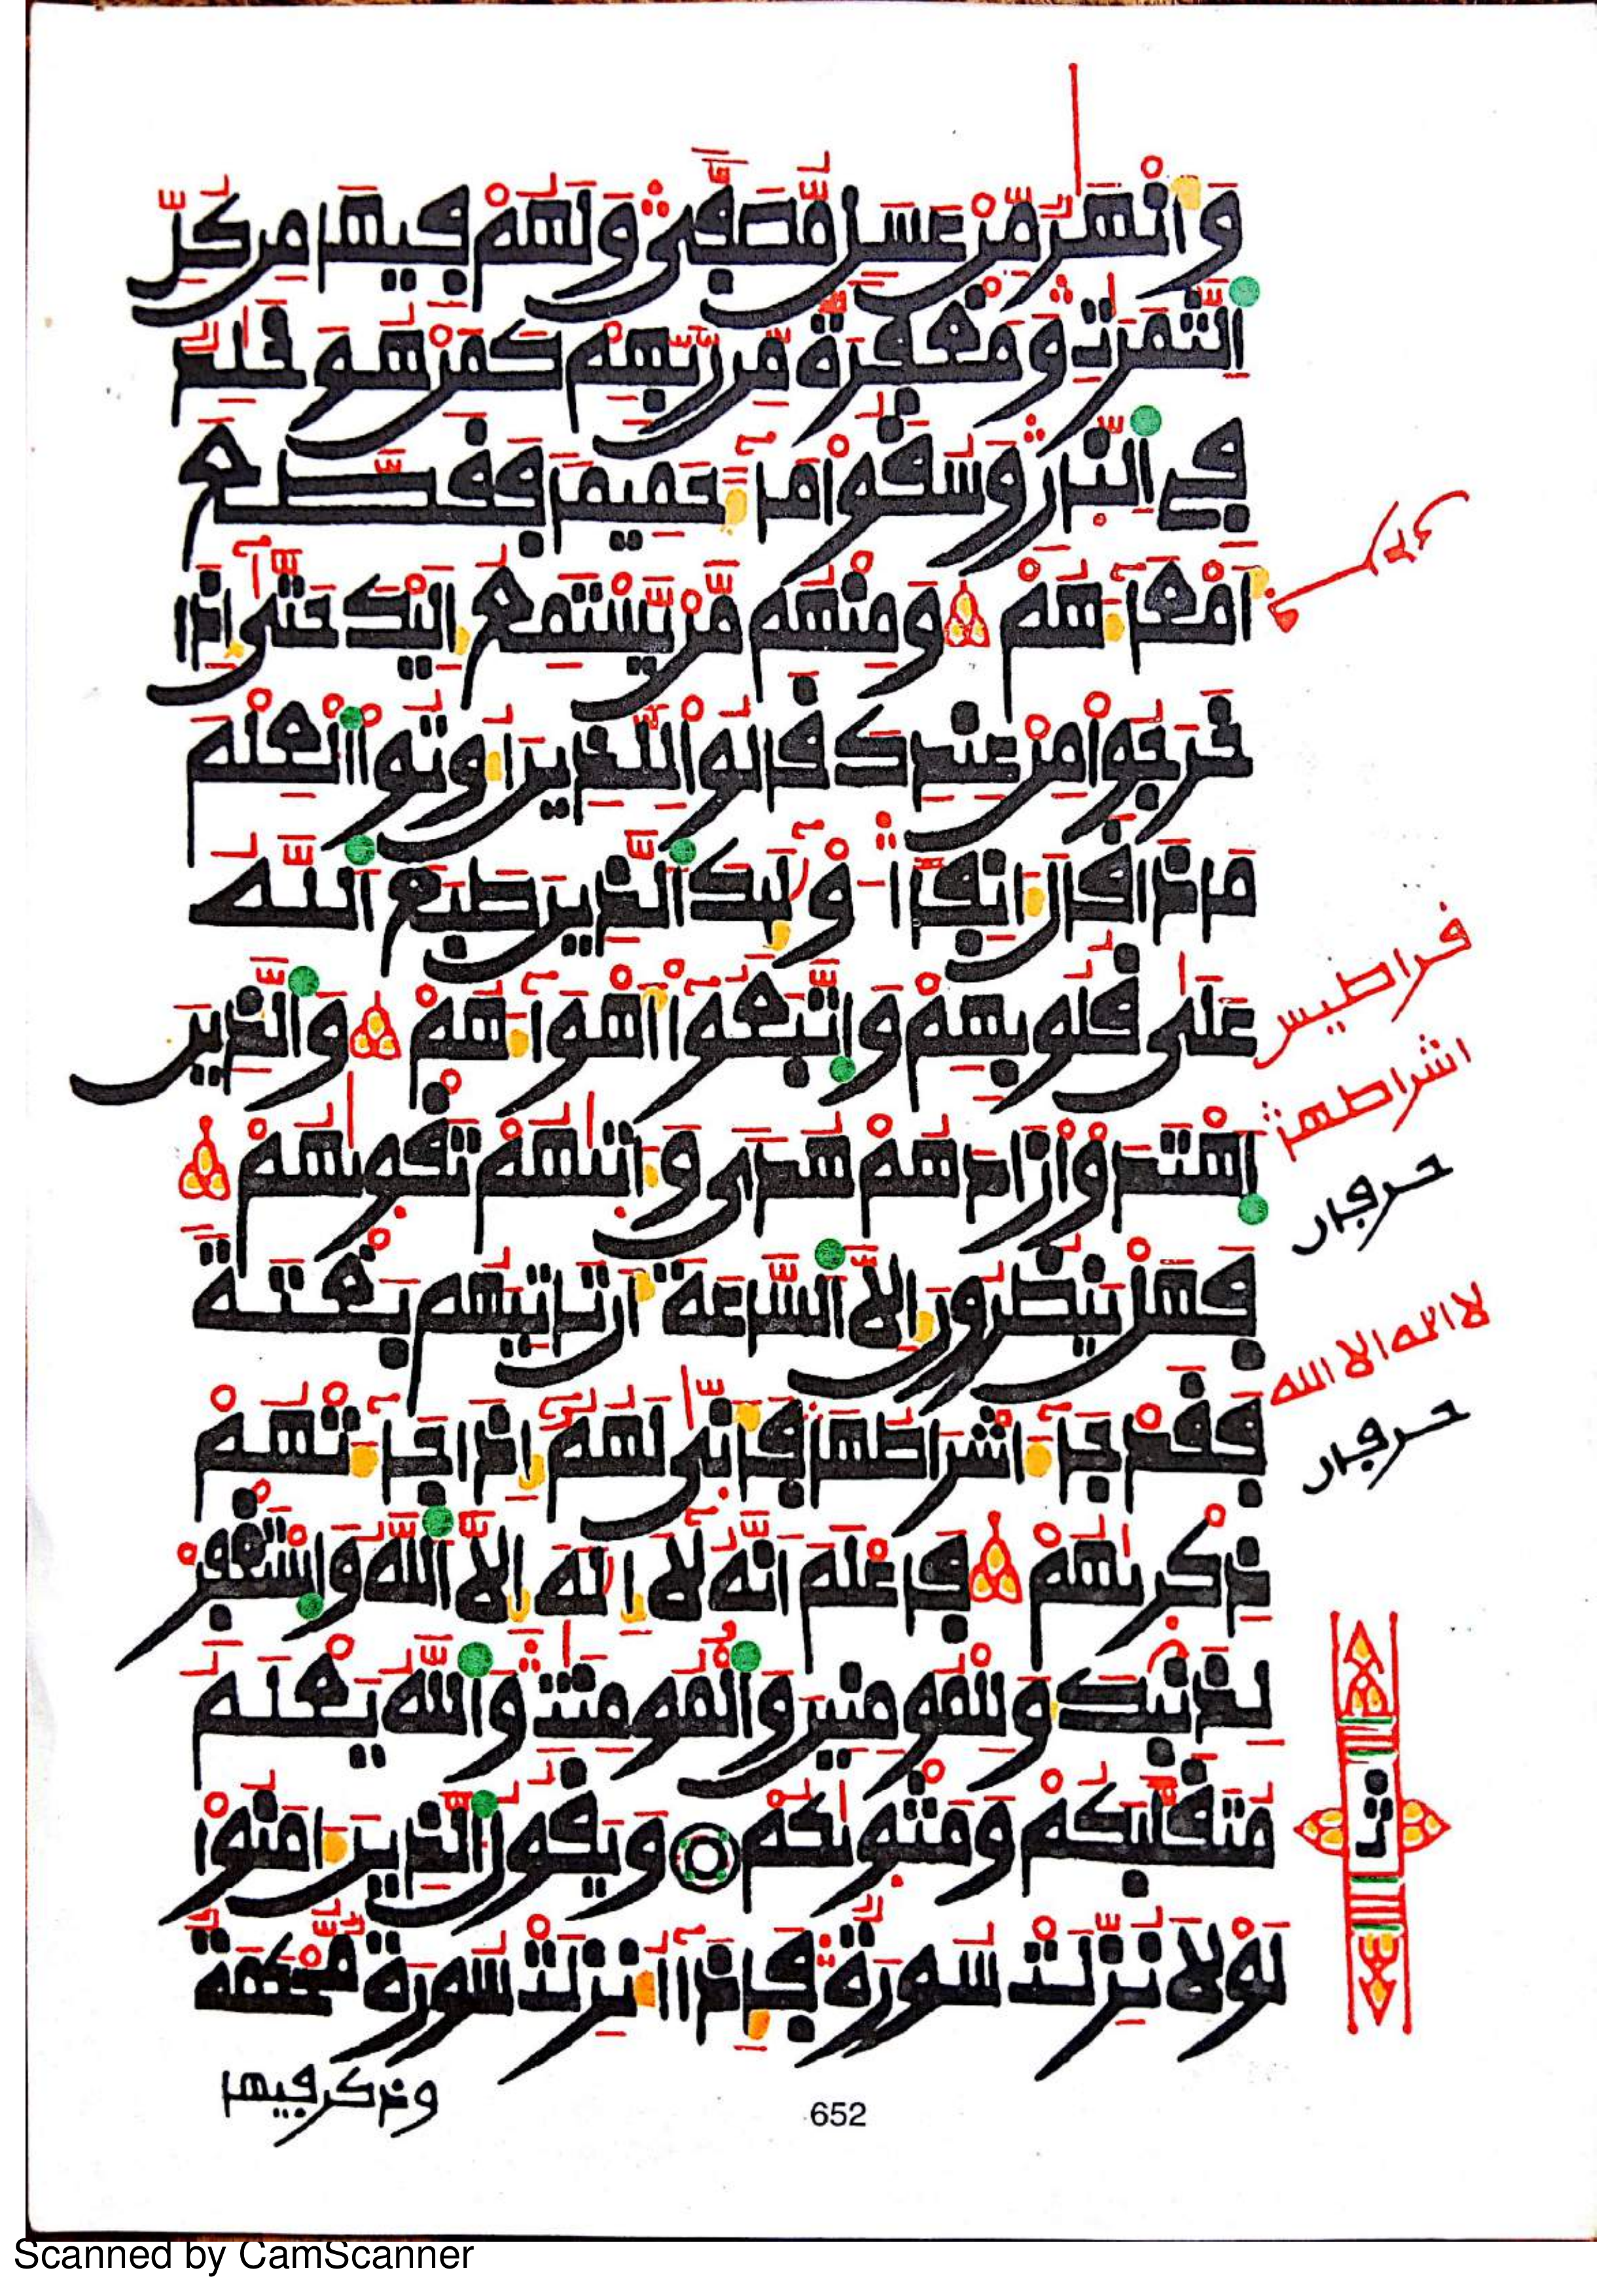 وَأَنْهَٰرٌ مِّنْ عَسَلٍ مُّصَفًّى وَلَهُمْ فِيهَا مِن كُلِّ
اِ۬لثَّمَرَٰتِ وَمَغْفِرَةٌ مِّن رَّبِّهِمْ كَمَنْ هُوَ خَٰلِدٌ
فِي اِ۬لنّ۪ارِ وَسُقُواْ مَآءً حَمِيماً فَقَطَّعَ
أَمْعَآءَهُمْ وَمِنْهُم مَّنْ يَّسْتَمِعُ إِلَيْكَ حَتَّىٰٓ إِذَا
خَرَجُواْ مِنْ عِندِكَ قَالُواْ لِلذِينَ أُوتُواْ اُ۬لْعِلْمَ
مَاذَا قَالَ ءَانِفاً أُوْلَٰٓئِكَ اَ۬لذِينَ طَبَعَ اَ۬للَّهُ
عَلَىٰ قُلُوبِهِمْ وَاتَّبَعُوٓاْ أَهْوَآءَهُمْ وَالذِينَ
اَ۪هْتَدَوْاْ زَادَهُمْ هُدًى وَءَات۪ىٰهُمْ تَقْو۪ىٰهُمْ
فَهَلْ يَنظُرُونَ إِلَّا اَ۬لسَّاعَةَ أَن تَاتِيَهُم بَغْتَةً
فَقَدْ جَآءَ اشْرَاطُهَا فَأَنّ۪ىٰ لَهُمُۥٓ إِذَا جَآءَتْهُمْ
ذِكْر۪ىٰهُمْ فَاعْلَمْ أَنَّهُۥ لَآ إِلَٰهَ إِلَّا اَ۬للَّهُ وَاسْتَغْفِرْ
لِذَنۢبِكَ وَلِلْمُومِنِينَ وَالْمُومِنَٰتِ وَاللَّهُ يَعْلَمُ
مُتَقَلَّبَكُمْ وَمَثْو۪ىٰكُمْ وَيَقُولُ اُ۬لذِينَ ءَامَنُواْ
لَوْلَا نُزِّلَتْ سُورَةٌ فَإِذَآ أُنزِلَتْ سُورَةٌ مُّحْكَمَةٌ
وذكر فيها
فراطيس
اشراطهن
حرفان
لا اله الا الله
حرفان
ثن
652
Scanned by CamScanner